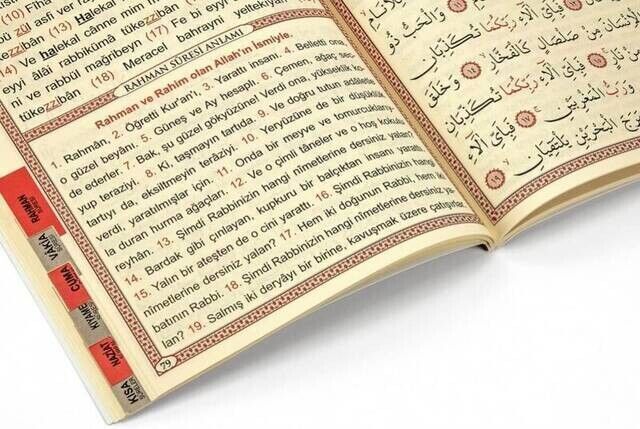 10) Fîha
asfi ver ray
zûl zzibân (13) Halekal
(14) Ve halekal cânne mim mim
eyyi âlâi rabbikümâ tükezzi
ni ve rabbül mağribeyn (17) Fe bi eyyi
tükezzibân (18) Meracel bahrayni yeltekıyan
RAHMAN SÛRESİ ANLAMI
Rahman ve Rahim olan Allah'ın ismiyle.
1. Rahmân, 2. Öğretti Kur'an'ı, 3. Yarattı insanı. 4. Belletti ona,
o güzel beyânı. 5. Güneş ve Ay hesaplı. 6. Çemen, ağaç sec-
de ederler. 7. Bak, şu güzel gökyüzüne! Verdi ona, yükseklik ko-
yup terazîyi. 8. Ki, taşmayın tartıda. 9. Ve doğru tutun adâletle
tartıyı da, eksiltmeyin terâzîyi. 10. Yeryüzüne de bir düşüklük
verdi, yaratılmışlar için. 11. Onda bir meyve ve tomurcuklanıp
duran hurma ağaçları. 12. Ve o çimli tâneler ve o hoş kokulu
reyhân. 13. Şimdi Rabbinizin hangi nîmetlerine dersiniz yalan?
14. Bardak gibi çınlayan, kupkuru bir balçıktan insanı yarattı.
15. Yalın bir ateşten de o cini yarattı. 16. Şimdi Rabbinizin hangi
nîmetlerine dersiniz yalan? 17. Hem iki doğunun Rabbi, hem iki
batının Rabbi. 18. Şimdi Rabbinizin hangi nîmetlerine dersiniz ya-
lan? 19. Salmış iki deryâyı bir birine, kavuşmak üzere çatışırlar.
79
RAHMAN SÛRESİ
VAKIA SÛRESİ
CUMA SÛRESİ
KIYAME SÛRESİ
NAZİAT SÛRESİ
KISA SÛRELER
وَالْحَبُّ ذُو
رَبِّكُمَا تُكَذِّبَانِ
مِنْ صَلْصَالٍ كَالْفَخَّارِ
وَخَلَقَ
فَبِأَيِّ آلَاءِ رَبِّكُمَا تُكَذِّبَانِ
وَرَبُّ الْمَغْرِبَيْنِ
فَبِأَيِّ آلَاءِ
الْبَحْرَيْنِ يَلْتَقِيَانِ